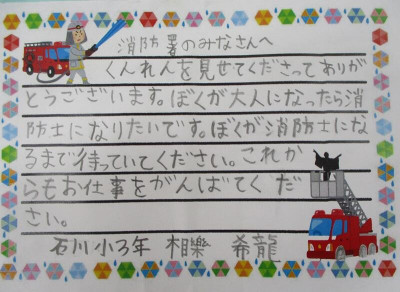 消防署のみなさんへ
くんれんを見せてくださってありが
とうございます。ぼくが大人になったら消
防士になりたいです。ぼくが消防士にな
るまで待っていてください。これか
らもお仕事をがんばてくだ
さい。
石川小3年 相樂 希龍